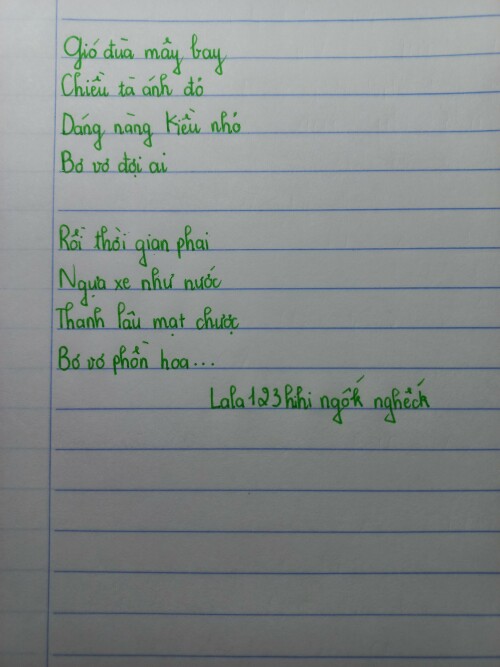 Gió đùa mây bay
Chiều tà ánh đỏ
Dáng nàng Kiều nhỏ
Bơ vơ đợi ai
Rồi thời gian phai
Ngựa xe như nước
Thanh lâu mạt chược
Bơ vơ phồn hoa...
Lala123hihi ngốk nghếck